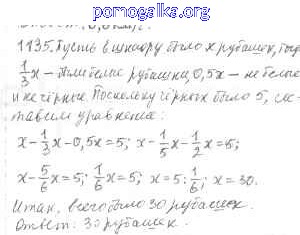 pomogalka.org
1135. Пусть в шкафу было x рубашек, тогда
1/3x – были белые рубашки, 0,5x – не белые
и не чёрные. Поскольку чёрных было 5, сос-
тавим уравнение:
x - 1/3x - 0,5x = 5; x - 1/5x - 1/2x = 5;
x - 5/6x = 5; 1/6x = 5; x = 5 : 1/6; x = 30.
Итак, всего было 30 рубашек.
Ответ: 30 рубашек.